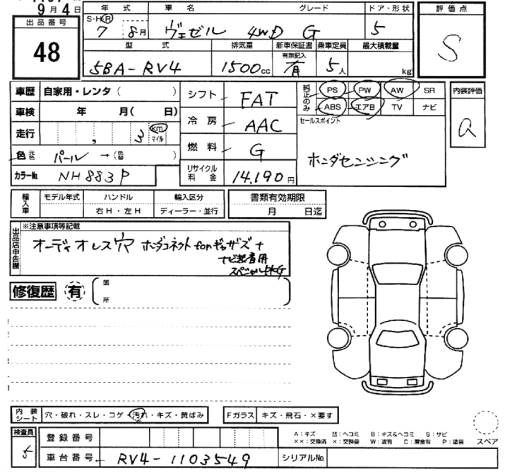 9月4日
出品番号
48
年式 車名 グレード ドア・形状
S・H・R 7 8月 ヴェゼル 4WD G 5
型式 排気量 新車保証書 乗車定員 最大積載量
有無記入
5BA-RV4 1500cc 有 5人 kg
評価点
S
車歴 自家用・レンタ( )
車検 年 月( 日)
走行 3 km マイル
色 元色 パール →(色替 )
カラーNo NH883P
シフト FAT
冷房 AAC
燃料 G
リサイクル料金 14,190円
純正のみ PS PW AW SR
ABS エアB TV ナビ
セールスポイント
ホンダセンシング
内装評価
Q
輸入車 モデル年式 ハンドル 輸入区分 書類有効期限
右H・左H ディーラー・並行 月 日迄
出品店申告欄
※注意事項等記載
オーディオレス穴 ホンダコネクトforギャザズ+
ナビ装着用
スペシャルPKG
修復歴 有 箇所
内装シート 穴・破れ・スレ・コゲ・汚れ・キズ・黄ばみ Fガラス キズ・飛石・×要す
検査員 5
登録番号
車台番号 RV4-1103549 シリアルNo
A:キズ U:ヘコミ B:キズ&ヘコミ S:サビ
××:交換済 ×:交換要 W:波有 C:腐食有 P:塗装
スペア